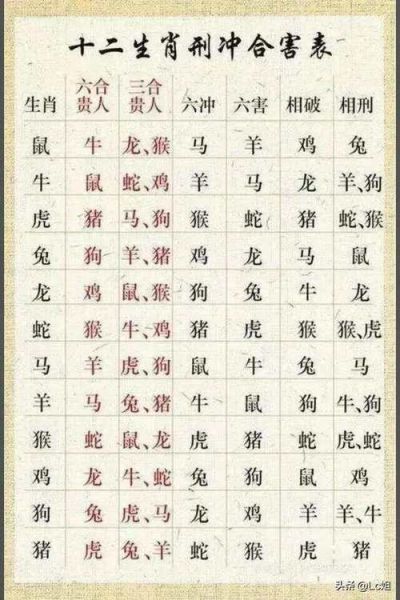 十二生肖刑冲合害表
生肖 六合贵人 三合贵人 六冲 六害 相破 相刑
鼠 牛 龙、猴 马 羊 鸡 兔
牛 鼠 蛇、鸡 羊 马 龙 羊、狗
虎 猪 马、狗 猴 蛇 猪 蛇、猴
兔 狗 羊、猪 鸡 龙 马 鼠
龙 鸡 鼠、猴 狗 兔 牛 龙
蛇 猴 牛、鸡 猪 虎 猴 猴、虎
马 羊 虎、狗 鼠 牛 兔 马
羊 马 兔、猪 牛 鼠 狗 牛、狗
猴 蛇 鼠、龙 虎 猪 蛇 虎、蛇
鸡 龙 牛、蛇 兔 狗 鼠 鸡
狗 兔 虎、马 龙 鸡 羊 羊、牛
猪 虎 兔、羊 蛇 猴 虎 猪
头条 @Lc姐